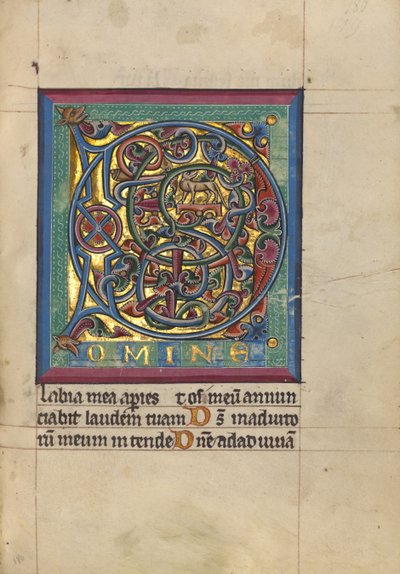 DOMINE
labia mea aperies & os meū annun
ciabit laudem tuam D s̄ in adiuto
riū meum intende D n̄e ad adiuuā